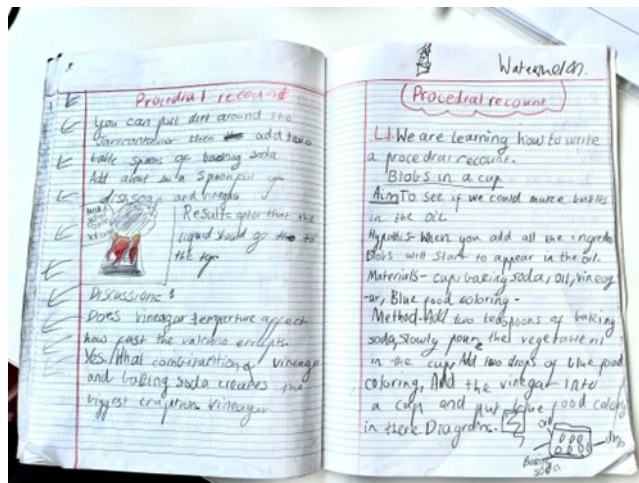 Procedral recount
You can put dirt around the
container then add two
table spoons of baking soda
Add about a spoonful of
dishsoap and vinegar
Result= after that the
liquid should go to
the top
Discussions
Does vineagar temperture affect
how fast the valcano errupts.
Yes. What combination of vineagar
and baking soda creates the
biggest eruption vineagar
Watermelon.
Procedral recount
L.I. We are learning how to write
a procedral recount.
Blobs in a cup
Aim To see if we could make bubbles
in the oil.
When you add all the ingredi
Blobs will start to appear in the oil.
Materials- cup, baking soda, oil, vineag
-ar, Blue food coloring -
Method- Add two teaspoons of baking
soda, slowly poure the vegetable oil
in the cup, Add two drops of blue food
coloring, Add the vinegar into
a cup and put blue food coloring
in there Diagrams.
oil
Baking
soda